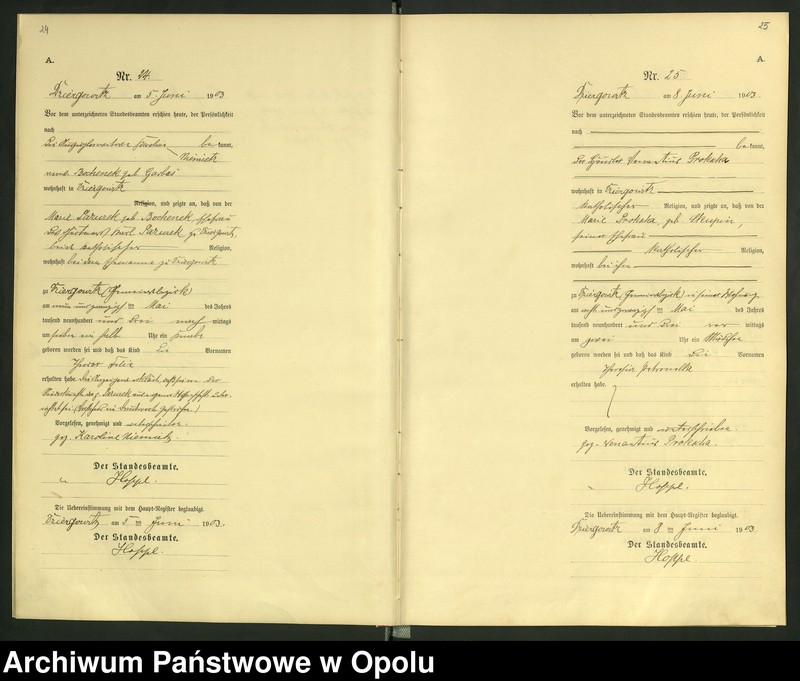 24
A.
Nr. 24.
Dziergowitz am 5 Juni 1903
Vor dem unterzeichneten Standesbeamten erschien heute, der Persönlichkeit
nach
be kannt,
Niemietz
Bochenek geb
wohnhaft in Dziergowitz
Religion, und zeigte an, daß von der
Marie geb Bochenek, Ehefrau
zu Dziergowitz
beide katholischer Religion,
wohnhaft bei dem Ehemanne zu Dziergowitz
zu Dziergowitz (Gemeindebezirk)
am ten Mai des Jahres
tausend neunhundert und drei nach mittags
um sieben ein halb Uhr ein Knabe
geboren worden sei und daß das Kind die Vornamen
Theodor Felix
erhalten habe. Die Anzeigende erklärte, daß sie bei der
Niederkunft der
Vorgelesen, genehmigt und unterschrieben.
gez. Karoline Niemietz.
Der Standesbeamte.
Hoppe.
Die Uebereinstimmung mit dem Haupt-Register beglaubigt.
Dziergowitz am 5 ten Juni 1903.
Der Standesbeamte.
Hoppe.
25
A.
Nr. 25
Dziergowitz am 8. Juni 1903.
Vor dem unterzeichneten Standesbeamten erschien heute, der Persönlichkeit
nach
be kannt,
der Häusler Venantius Prokscha
wohnhaft in Dziergowitz
katholischer Religion, und zeigte an, daß von der
Marie Prokscha, geb
seiner Ehefrau
katholischer Religion,
wohnhaft bei ihm
zu Dziergowitz (Gemeindebezirk) in seiner Wohnung
am acht und zwanzig ten Mai des Jahres
tausend neunhundert und drei vor mittags
um zwei Uhr ein Mädchen
geboren worden sei und daß das Kind die Vornamen
Theresia Petronella
erhalten habe.
Vorgelesen, genehmigt und unterschrieben.
gez. Venantius Prokscha.
Der Standesbeamte.
Hoppe.
Die Uebereinstimmung mit dem Haupt-Register beglaubigt.
Dziergowitz am 8 ten Juni 1903
Der Standesbeamte.
Hoppe
Archiwum Państwowe w Opolu